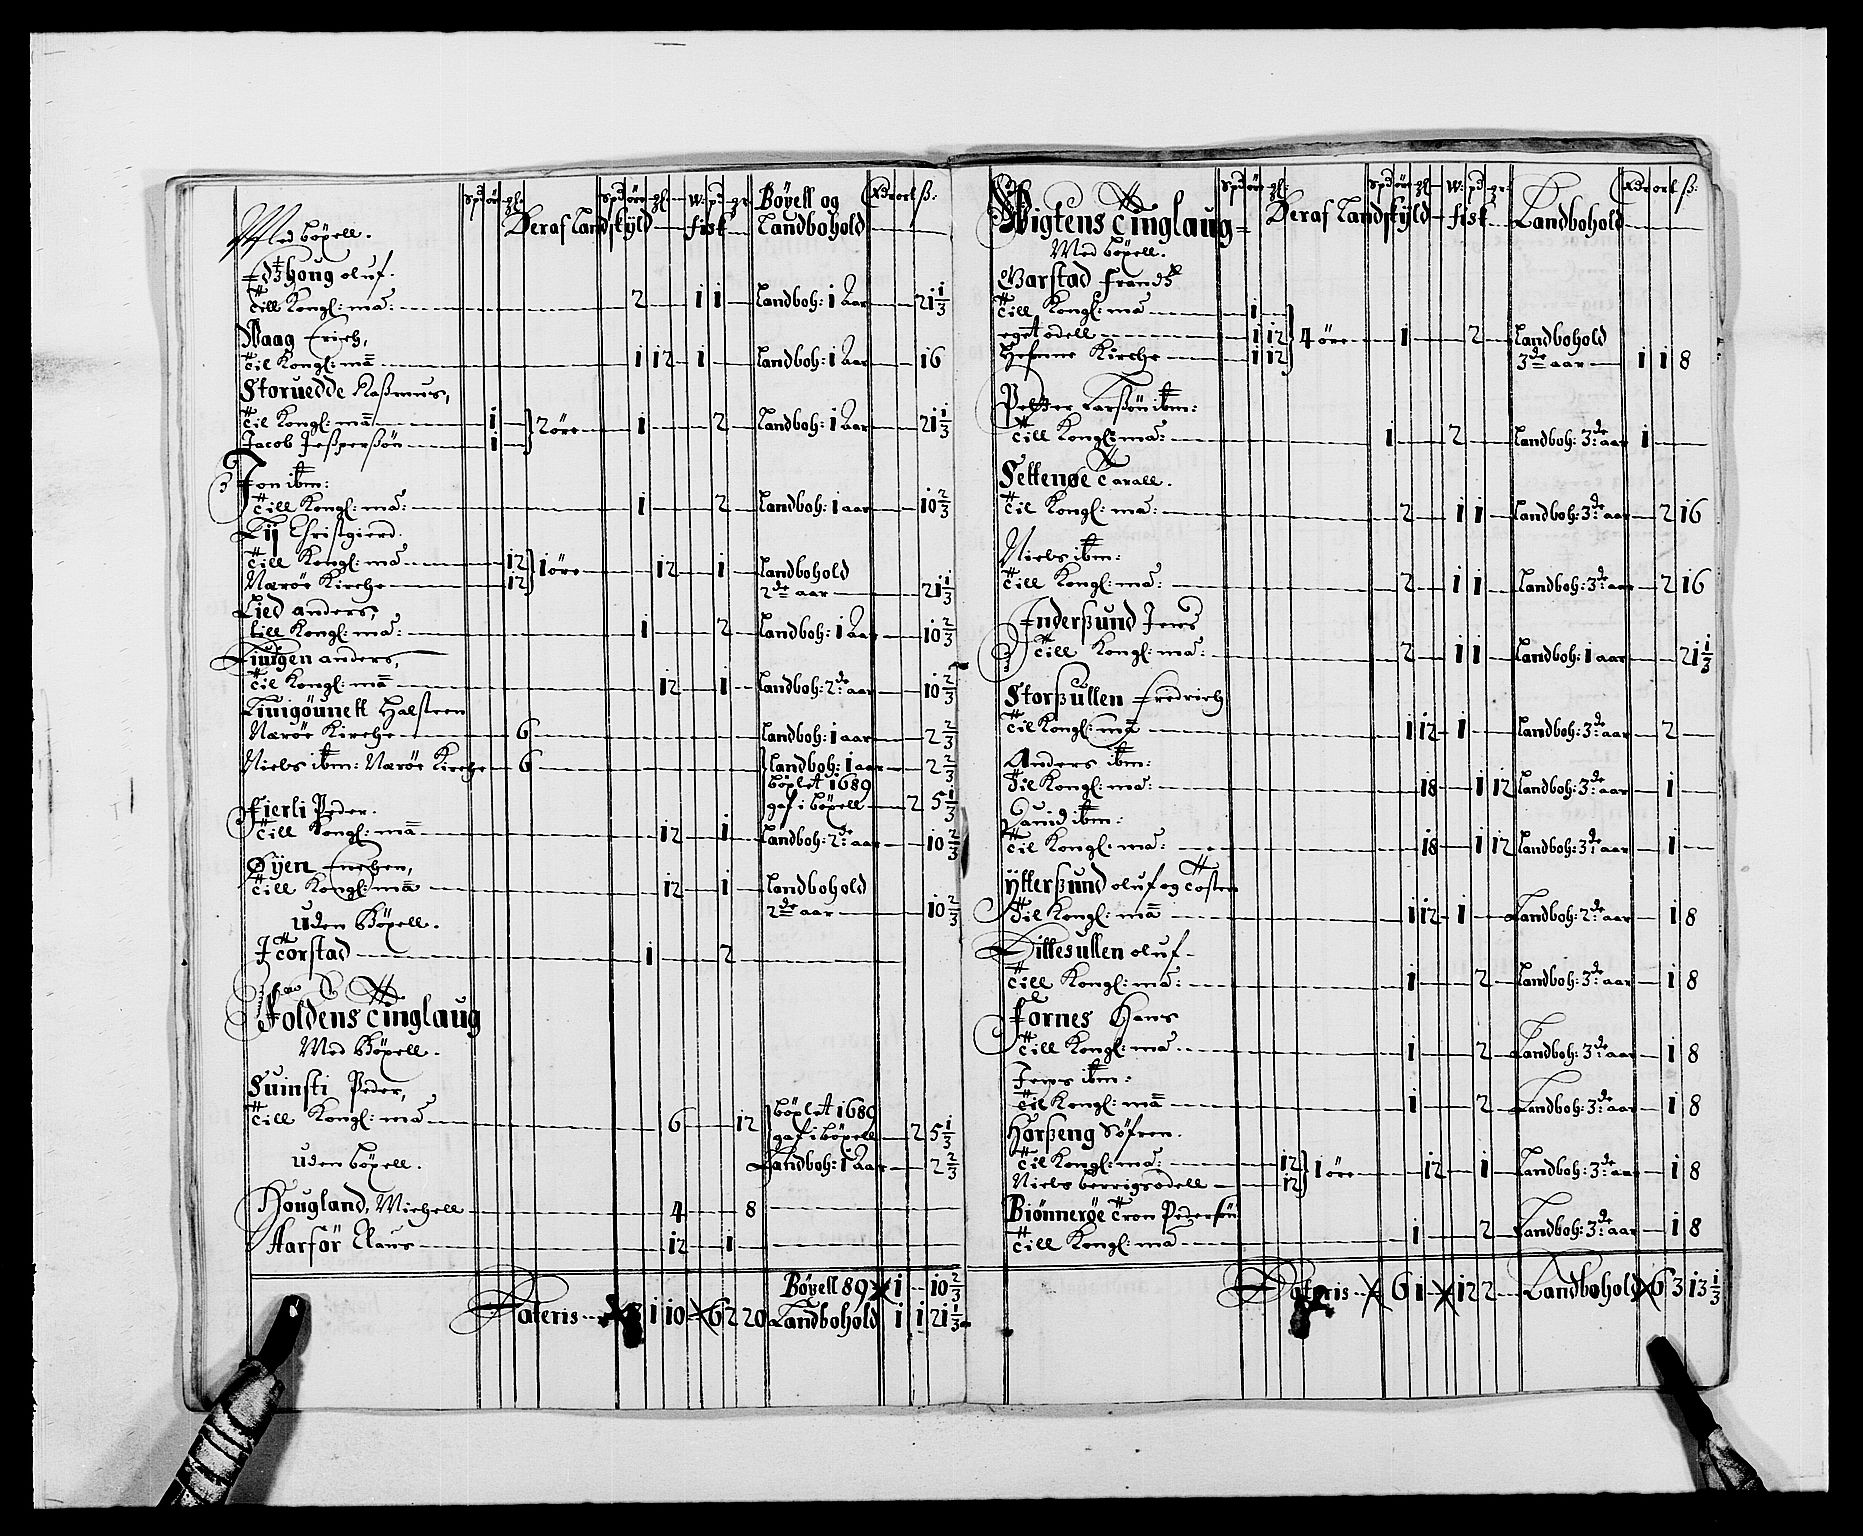 Spd ör gl: Spd öre gl W: pd gr Böxell og Rdr ort ß:
Med böxell. Deraf Landskyld fisk Landbohold
Edtzhoug oluf.
Till Kongl: ma: 2 1 1 Landboh: 1 Aar 21 1/3
Waag Erich,
Til Kongl: ma 1 12 1 Landboh: 1 Aar 16
Storuedde Rassmus,
Til Kongl: ma 1
Jacob Jesspersøn 1 } 2 öre 1 2 Landboh: 1 Aar 21 1/3
Jon ibm:
Till Kongl: ma: 1 2 Landboh: 1 aar 10 2/3
Lij Christgierd.
Till Kongl: ma 12
Nærøe Kirche 12 } 1 öre 12 1 Landbohold
2de aar 21 1/3
Lied anders,
till Kongl: ma: 1 2 Landboh: 1 Aar 10 2/3
Liuigen anders,
Til Kongl: ma 12 1 Landboh: 2de aar 10 2/3
Liuigöunett Halsteen
Nærøe Kirche 6 Landboh: 1 aar 2 2/3
Niels ibm: Nærøe Kirche 6 Landboh: 1 aar 2 2/3
böxlet 1689
gaf i böxell 2 5 1/3
Fierli Peder.
Till Kongl: ma 12 1 Landboh: 2de aar 10 2/3
Öyen Enchen,
Till Kongl: ma 12 1 Landbohold
2de aar 10 2/3
uden Böxell.
Torstad 1 2
Foldens Tinglaug
Med Böxell.
Suinsti Peder,
Till Kongl: ma 6 12 böxlet 1689
gaf i böxell 2 5 1/3
uden böxell. Landboh: 1 Aar 2 2/3
Hougland, Michell 4 8
Aarför Claus 12 1
Böxell 89 1 10 2/3
Lateris 3 1 10 6 2 20 Landbohold 1 1 21 1/3
Spd öre gl: Spd öre gl W: pd gr Rdr ort ß:
Wigtens Tinglaug Deraf Landskyld fisk Landbohold
Med böxell.
Garstad frandtz
Till Kongl: ma 1
eget odell 1 12
Hefnne Kirche 1 12 } 4 öre 1 2 Landbohold
3de aar 1 1 8
Petter Larssön ibm:
Till Kongl: ma: 1 2 Landboh: 3de aar 1
Settenøe Tarall.
Til Kongl: ma: 2 1 1 Landboh: 3de aar 2 16
Niels ibm:
Till Kongl: ma: 2 1 1 Landboh: 3de aar 2 16
Inderssund Jens
Till Kongl: ma: 2 1 1 Landboh: 1 aar 21 1/3
Storssullen Fredrich
Til Kongl: ma 1 12 1 Landboh: 3de aar 2
Anders ibm:
Til Kongl: ma: 18 1 12 Landboh: 3de aar 1
Dauid ibm:
Til Kongl: ma: 18 1 12 Landboh: 3de aar 1
Ytterssund oluf og Tosten
Til Kongl: ma 1 12 1 Landboh: 2de aar 1 8
Littesullen oluf
Till Kongl: ma: 1 2 Landboh: 3de aar 1 8
Fornes Hans
Till Kongl: ma 1 2 Landboh: 3de aar 1 8
Jens ibm:
Til Kongl: ma 1 2 Landboh: 3de aar 1 8
Harsseng Söfren.
Til Kongl: ma: 12
Niels berrigs odell 12 } 1 öre 12 1 Landboh: 3de aar 1 8
Biönnerøe Tron Pedersøn
Till Kongl: ma 1 2 Landboh: 3de aar 1 8
Lateris 6 1 12 2 Landbohold 6 3 13 1/3